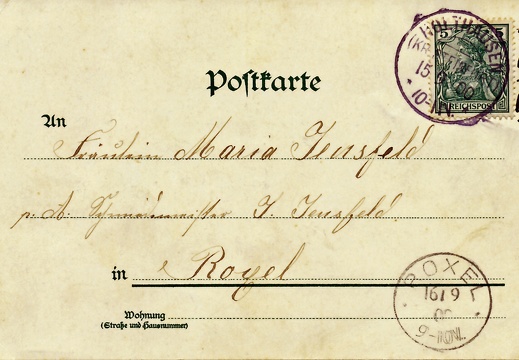 Postkarte
5 5
HOLTHAUSEN
15 9 00
10-11 N.
REICHSPOST
An
Fräulein Maria Jensfeld
p. A. Schreinermeister J. Jensfeld.
in Roxel
ROXEL
16/9
00
9-10N.
Wohnung
(Straße und Hausnummer)